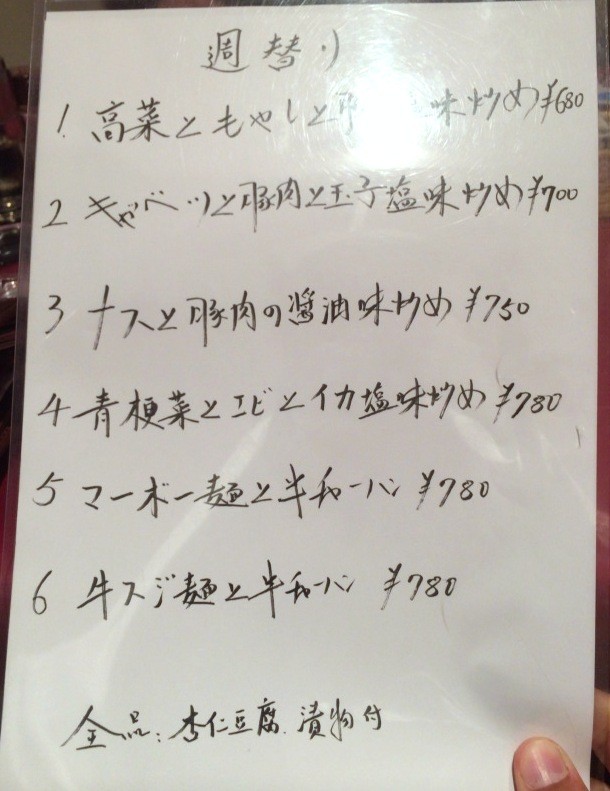 週替り
1 高菜ともやしと豚 味炒め ¥680
2 キャベツと豚肉と玉子塩味炒め ¥700
3 ナスと豚肉の醤油味炒め ¥750
4 青梗菜とエビとイカ塩味炒め ¥780
5 マーボー麺と半チャーハン ¥780
6 牛スジ麺と半チャーハン ¥780
全品:杏仁豆腐.漬物付